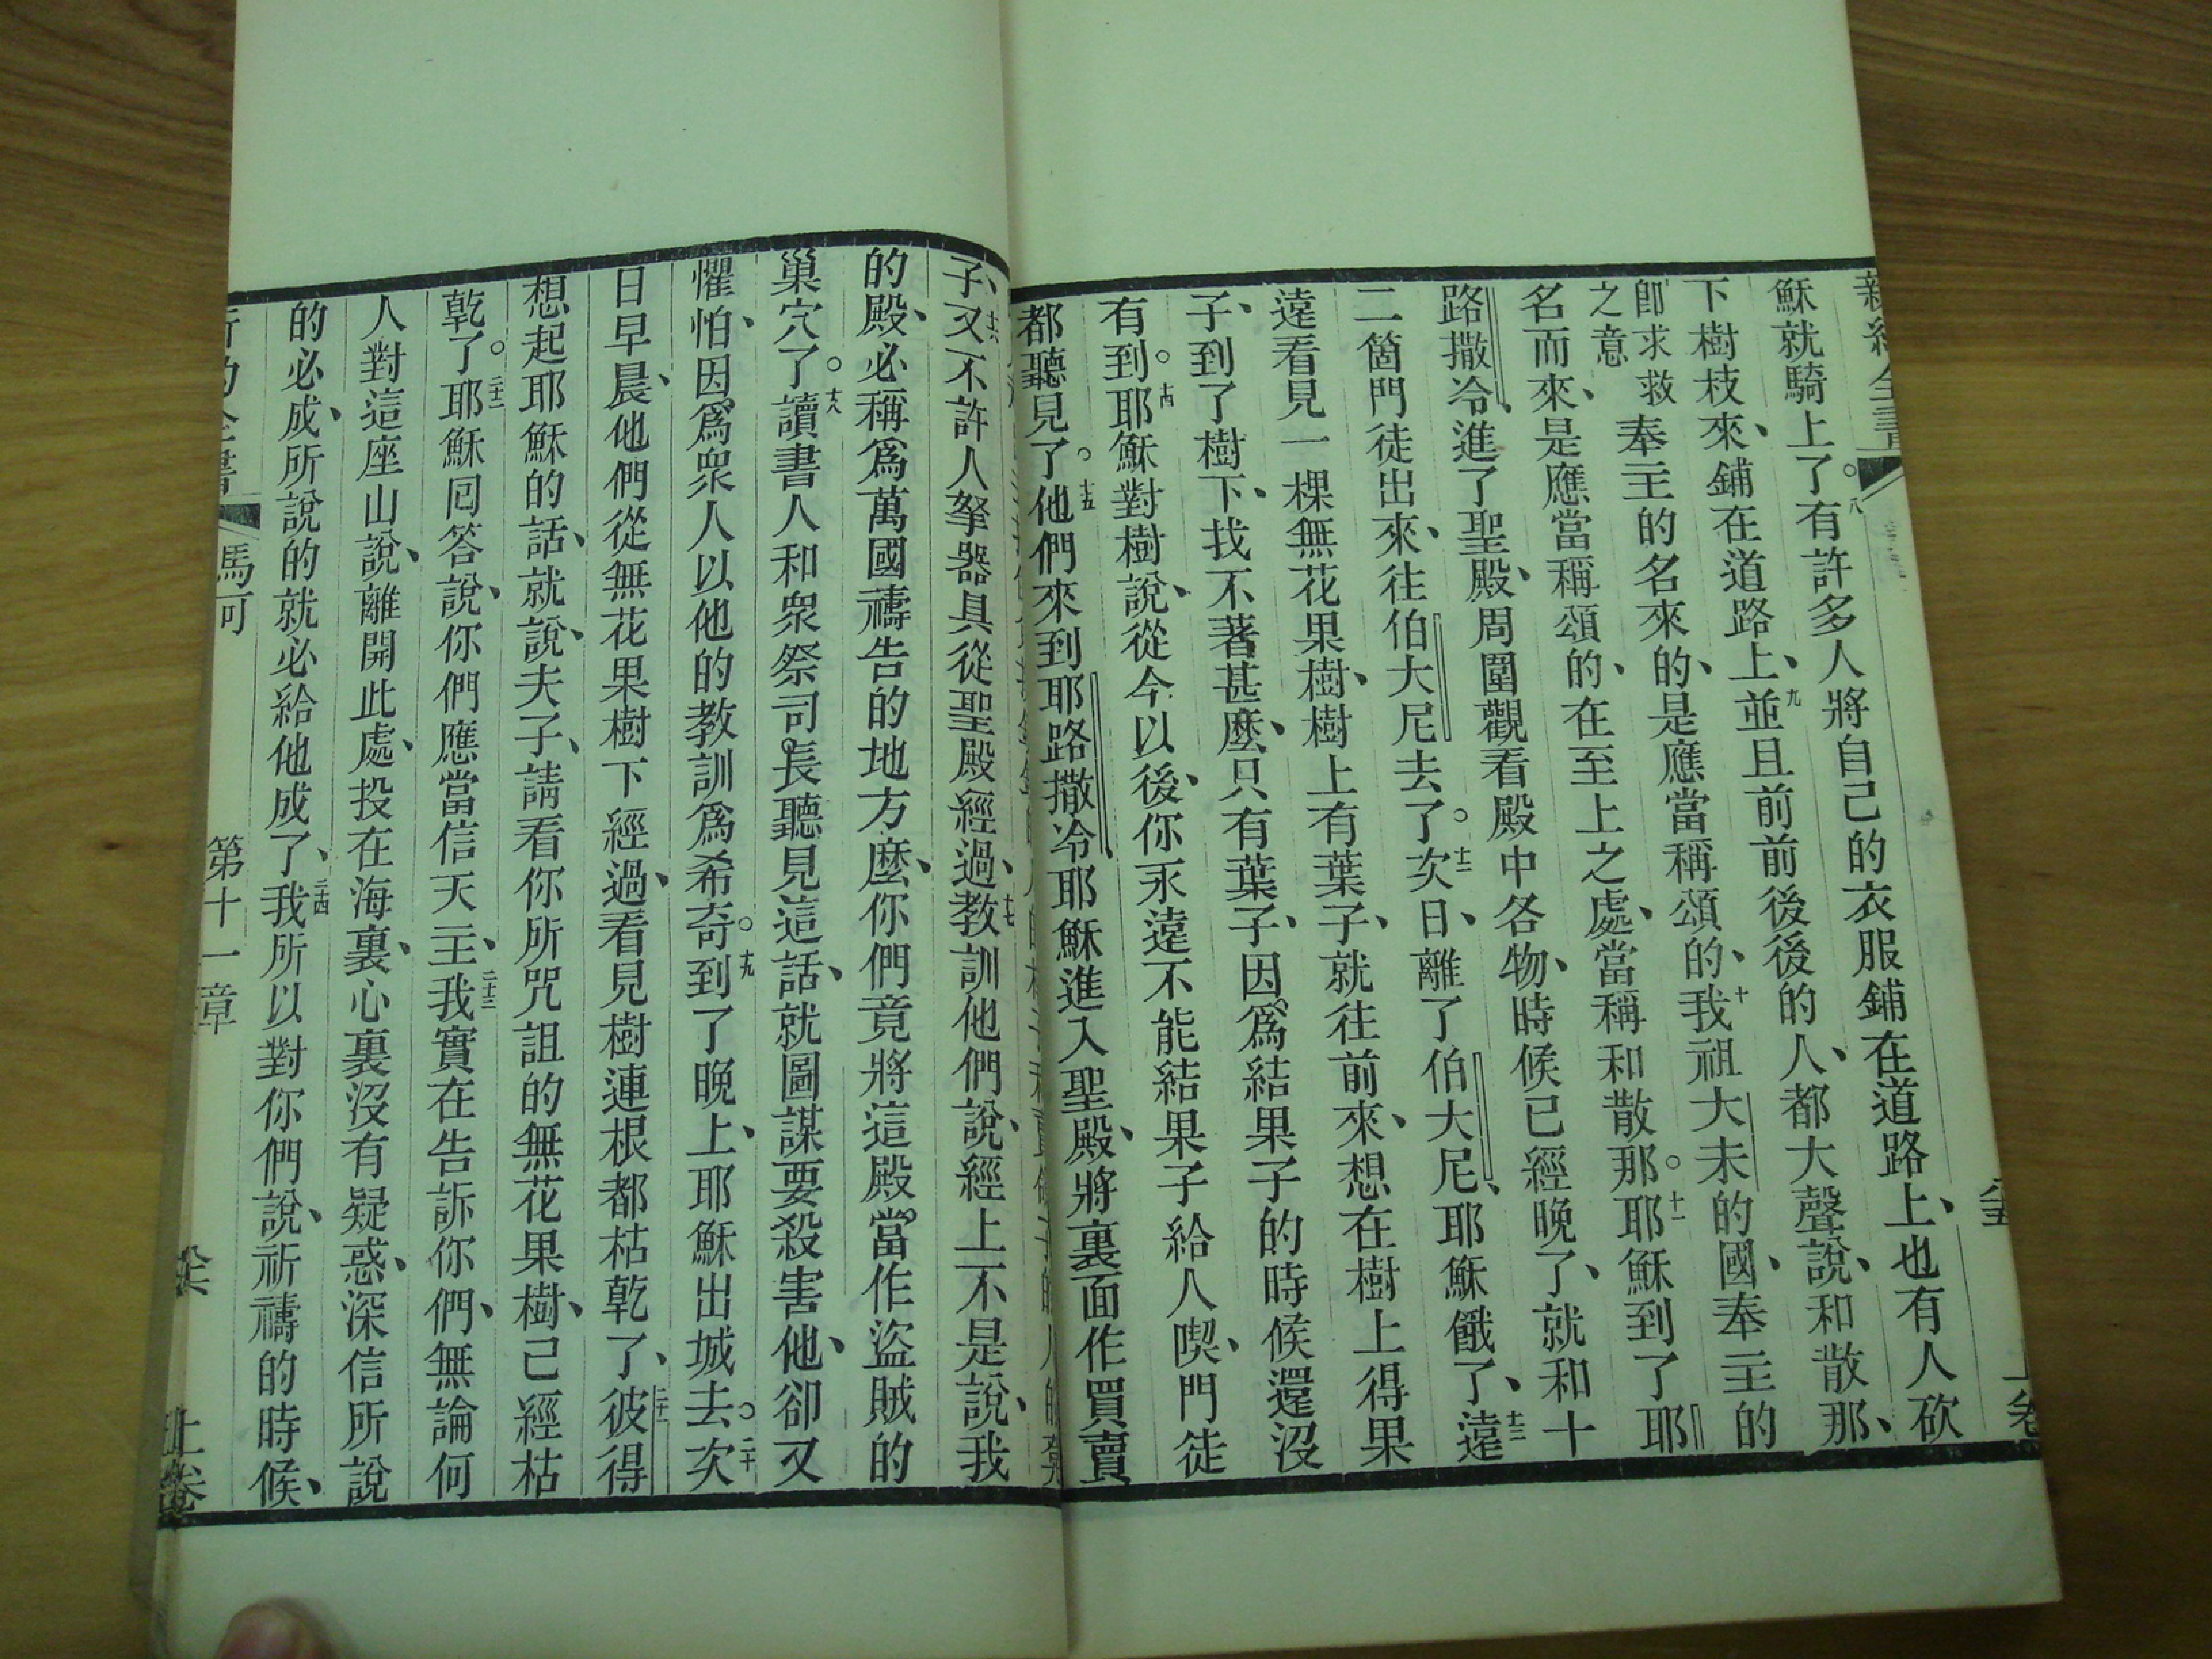 穌就騎上了。八有許多人將自己的衣服鋪在道路上、也有人砍
下樹枝來、鋪在道路上、九並且前前後後的人、都大聲說、和散那、
卽求救
之意
奉主的名來的、是應當稱頌的、十我祖大未的國、奉主的
名而來、是應當稱頌的、在至上之處、當稱和散那。十一耶穌到了耶
路撒冷、進了聖殿、周圍觀看殿中各物、時候已經晚了、就和十
二箇門徒出來、往伯大尼去了。十二次日、離了伯大尼、耶穌餓了、十三遠
遠看見一棵無花果樹、樹上有葉子、就往前來、想在樹上得果
子、到了樹下、找不著甚麼、只有葉子、因爲結果子的時候還沒
有到。十四耶穌對樹說、從今以後、你永遠不能結果子給人喫、門徒
都聽見了。十五他們來到耶路撒冷、耶穌進入聖殿、將裏面作買賣
子、十六又不許人拏器具從聖殿經過、十七教訓他們說、經上不是說、我
的殿、必稱爲萬國禱告的地方麼、你們竟將這殿當作盜賊的
巢穴了。十八讀書人和衆祭司長聽見這話、就圖謀要殺害他、卻又
懼怕、因爲衆人以他的教訓爲希奇。十九到了晚上、耶穌出城去。二十次
日早晨、他們從無花果樹下經過、看見樹連根都枯乾了、二十一彼得
想起耶穌的話、就說、夫子、請看你所咒詛的無花果樹、已經枯
乾了。二十二耶穌囘答說、你們應當信天主、二十三我實在告訴你們、無論何
人對這座山說、離開此處、投在海裏、心裏沒有疑惑、深信所說
的必成、所說的就必給他成了、二十四我所以對你們說、祈禱的時候、
新約全書 馬可 第十一章 上卷